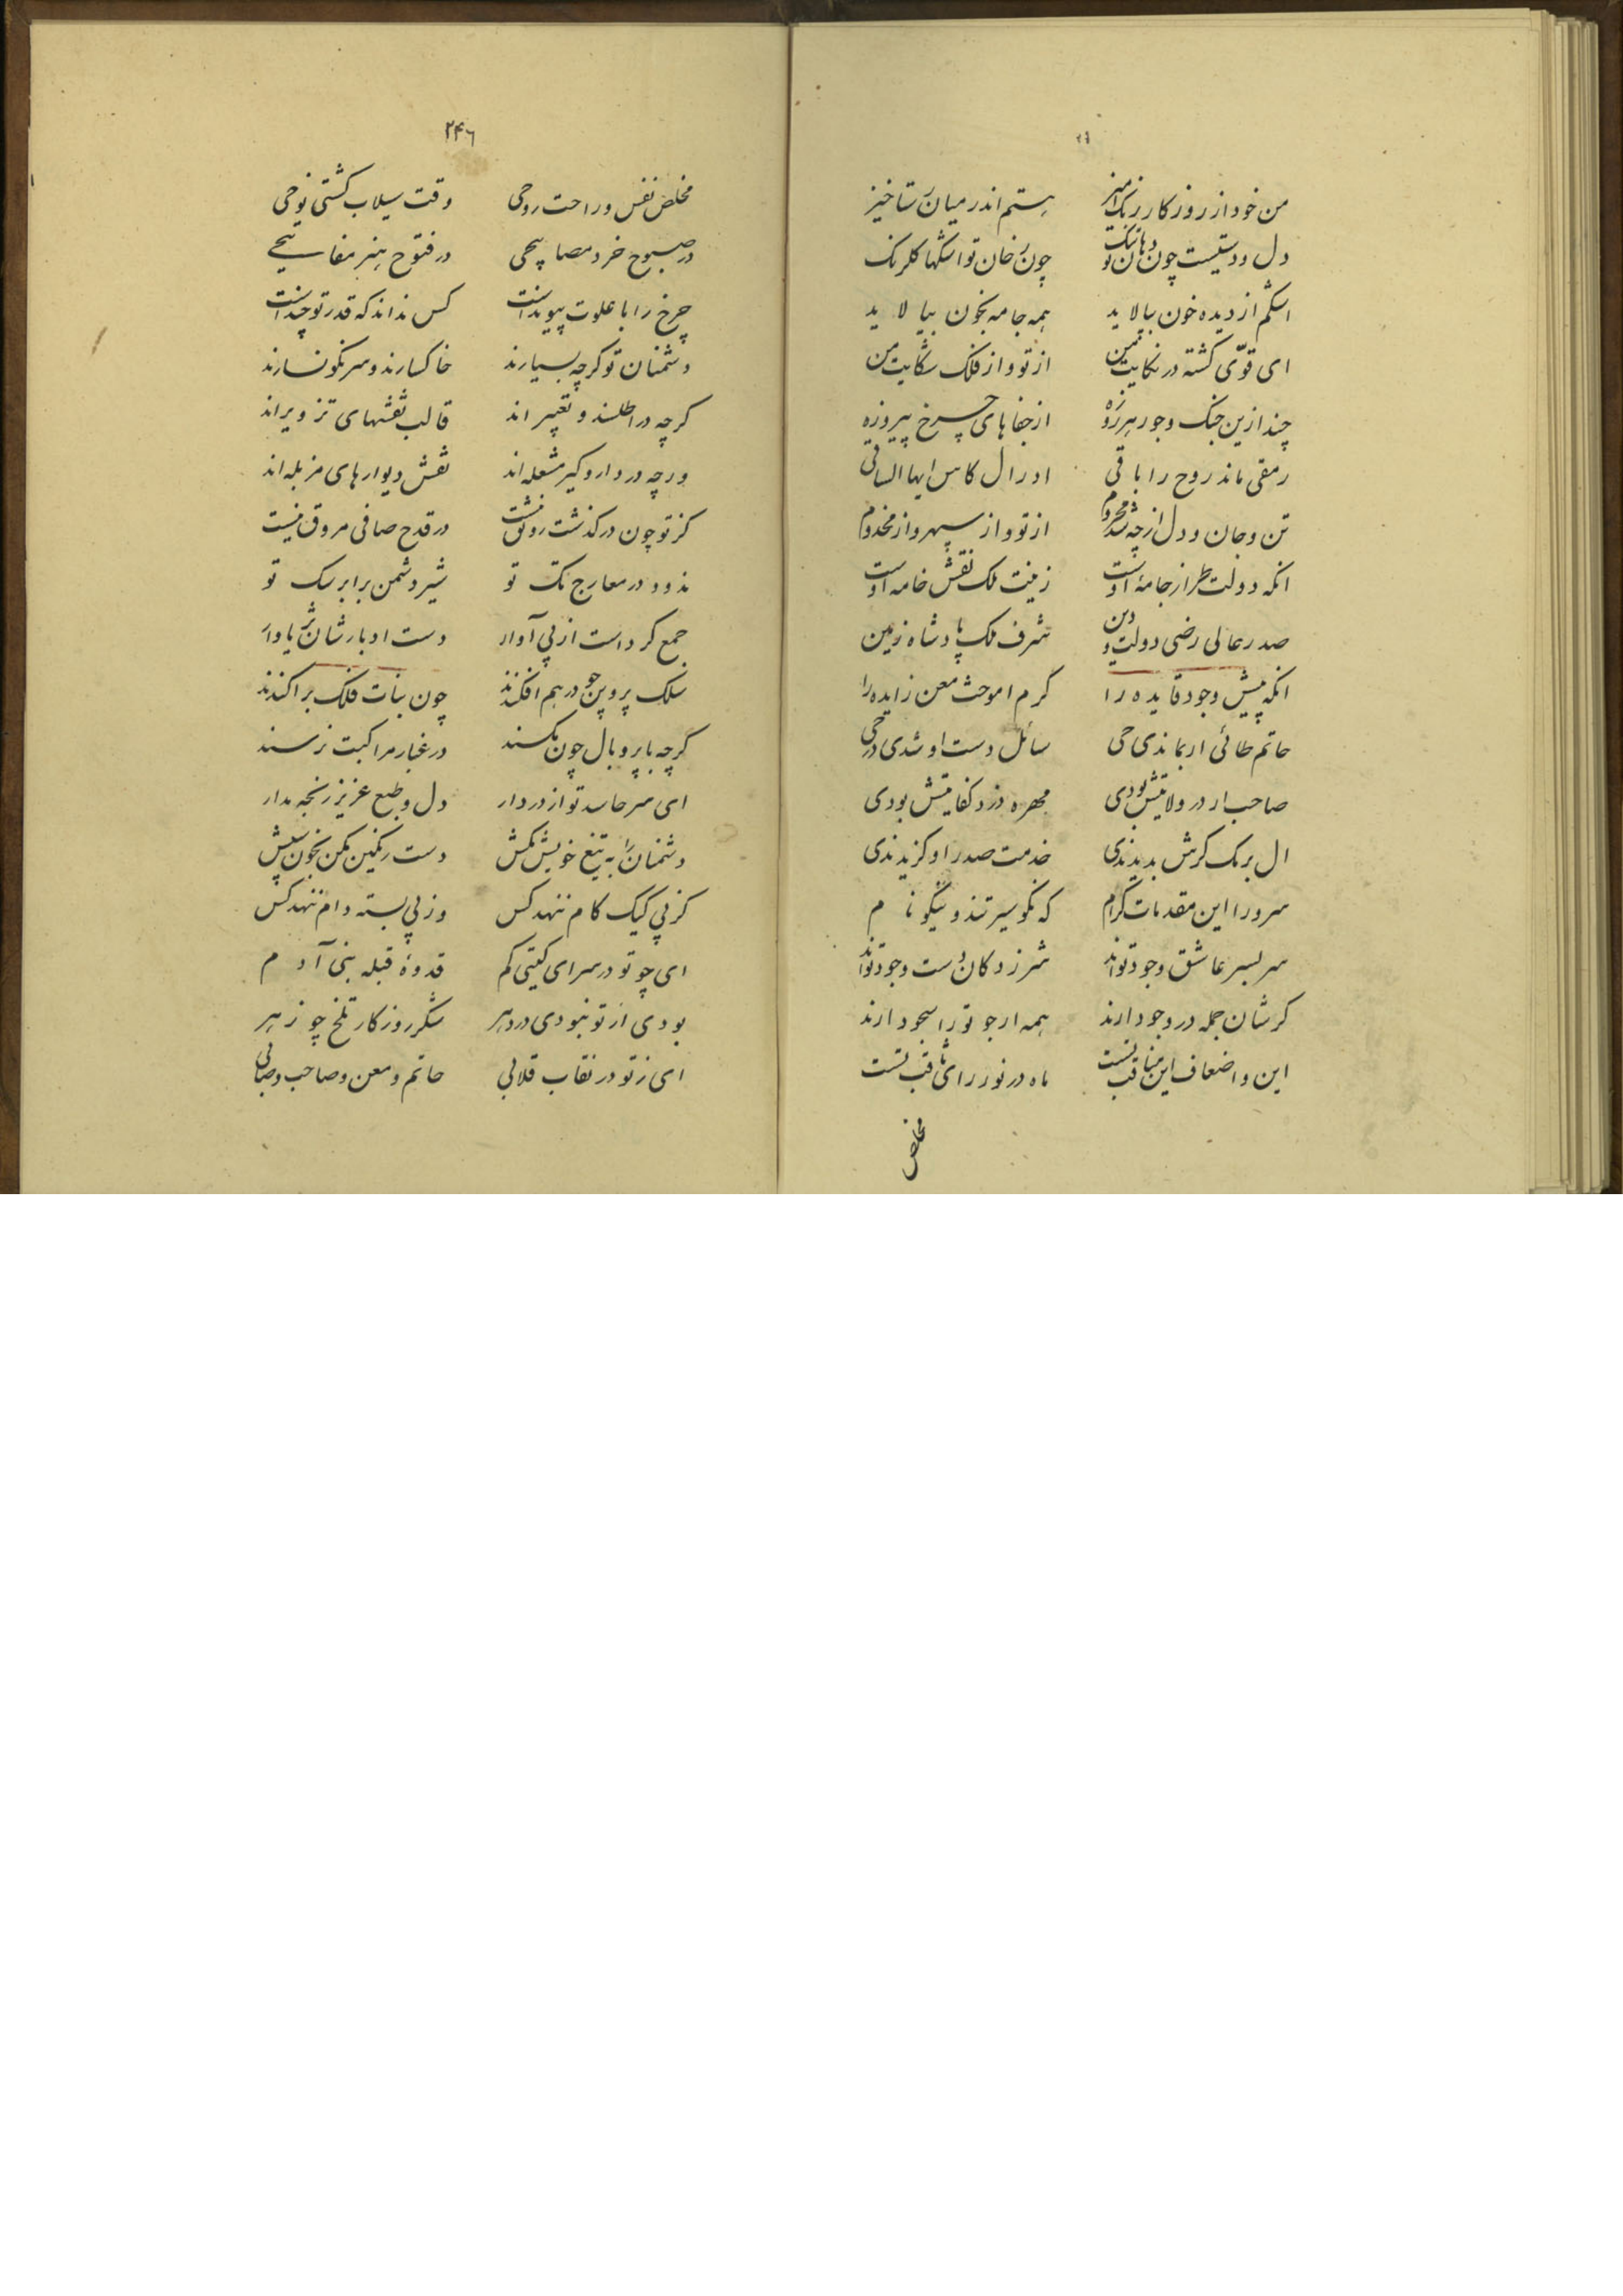 من خود از روزکار رنک امیز هستم اندر میان رستاخیز
دل و دستیست چون دهان تو تنک چون رخان تو اشکها کلرنک
اشکم از دیده خون بپالاید همه جامه بخون بیالاید
ای قوّی کشته در نکایت من از تو و از فلک شکایت من
چند ازین جنک و جور هر روزه از جفاهای چرخ پیروزه
رمقی ماند روح را باقی ادر ال کاس ایها الساقی
تن و جان و دل ازچه شد محروم از تو و از سپهر و از مخدوم
انکه دولت طراز جامهٔ اوست زینت ملک نقش خامه اوست
صدر عالی رضی دولت و دین شرف ملک پادشاه زمین
انکه پیش وجود فایده را کرم اموخت معن زایده را
حاتم طائی ار بماندی حی سائل دست او شدی در حی
صاحب ار در ولایتش بودی مهره دزد کفایتش بودی
ال برمک کرش بدیدندی خدمت صدر او کزیدندی
سرورا این مقدمات کرام که نکو سیرتند و نیکو نام
سر بسر عاشق وجود تواند ثمر زد کان دست وجود تواند
کرشان جمله در وجود ارند همه ارجو ترا سجود ارند
این و اضعاف این مناقب تست ماه در نور رای ثاقب تست
مخلص
۲۴۶
مخلص نفس و راحت روحی وقت سیلاب کشتی نوحی
در صبوح خرد مصابیحی در فتوح هنر مفاتیحی
چرخ را با علوت پیوند است کس نداند که قدر تو چند است
دشمنان تو کرچه بسیارند خاکسارند و سرنکونسارند
کرچه در اطلسند و تعبیر اند قالب نقشهای تزویراند
ورچه در دار و کیر مشعله اند نقش دیوارهای مزبله اند
کز تو چون درکذشت رونق نیست در قدح صافی مروق نیست
ندود در معارج تک تو شیر دشمن برابر سک تو
جمع کرداست از پی آوار دست ادبارشان
سلک پروین چو در هم افکندند چون بنات فلک براکندند
کرچه با پر و بال چون مکسند در غبار مراکبت نرسند
ای سر حاسد تو از در دار دل و طبع عزیز رنجه مدار
دشمنان را به تیغ خویش مکش دست رنکین مکن بخون
کز پی کیک کام ننهد کس وز پی بسته دام ننهد کس
ای چو تو در سرای کیتی کم قدوهٔ قبله بنی آدم
بودی ار تو نبودی در دهر شکر روزکار تلخ چو زهر
ای ز تو در نقاب قلابی حاتم و معن و صاحب و صابی